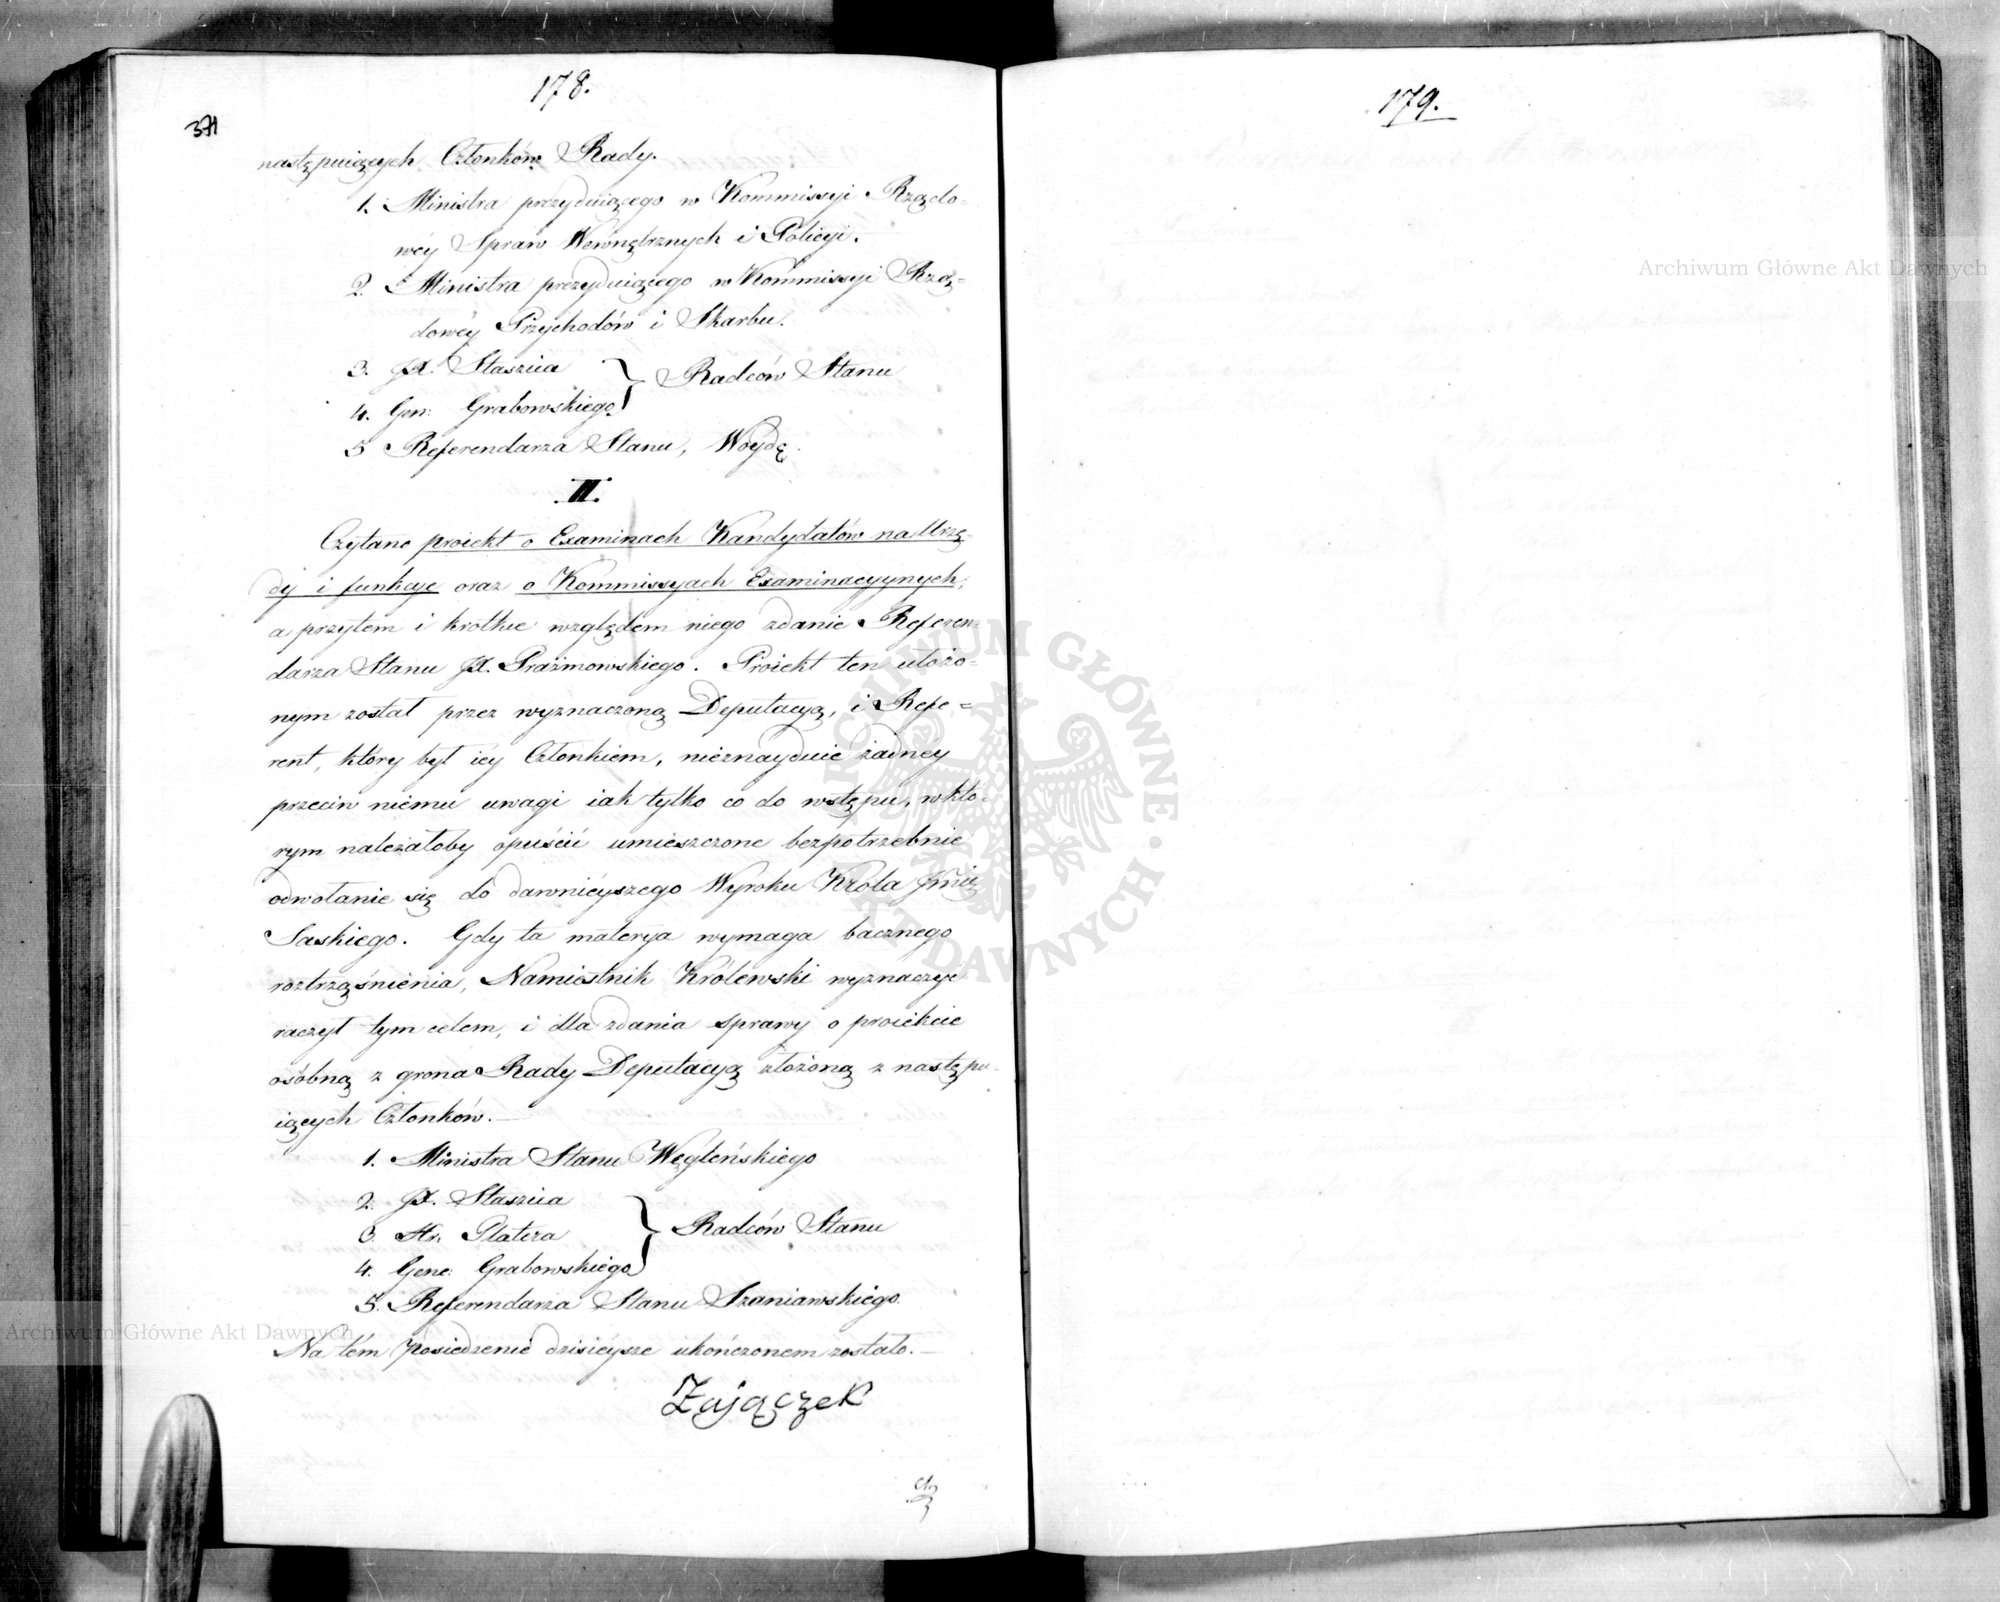 178.
371
następuiących Członków Rady.
1. Ministra prezyduiącego w Kommissyi Rządo-
wéy Spraw Wewnętrznych i Policyi.
2. Ministra prezyduiącego w Kommissyi Rzą-
dowéy Przychodów i Skarbu.
3. JX. Staszica
4. Gen: Grabowskiego } Radców Stanu
5 Referendarza Stanu, Woydę.
II.
Czytano proiekt o Examinach Kandydatów na Urzę-
dy i funkcye oraz o Kommissyach Examinacyynych,
a przytem i krótkie względem niego zdanie Referen-
darza Stanu JX. Prażmowskiego. Proiekt ten ułożo-
nym został przez wyznaczoną Deputacyą, i Refe-
rent, który był iéy Członkiem, nieznayduie żadnéy
przeciw niemu uwagi iak tylko co do wstępu, w któ-
rym należałoby opuścić umieszczone bezpotrzebnie
odwołanie się do dawnieyszego Wyroku Króla Jmci
Saskiego. Gdy ta materya wymaga bacznego
roztrząśnienia, Namiestnik Królewski wyznaczyć
raczył tym celem, i dla zdania sprawy o proiekcie
osóbną z grona Rady Deputacyą złożoną z następu-
iących Członków.—
1. Ministra Stanu Węgleńskiego
2. JX. Staszica
3. Hr. Platera } Radców Stanu
4. Gene: Grabowskiego
5. Referendarza Stanu Szaniawskiego.
Na tém posiedzenie dzisiéysze ukończonem zostało.—
Zajączek
179.
Archiwum Główne Akt Dawnych
Archiwum Główne Akt Dawnych
ARCHIWUM GŁÓWNE AKT DAWNYCH